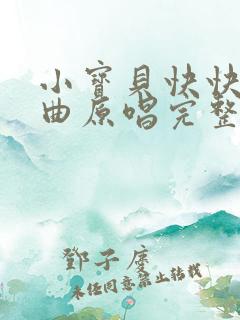 小寶貝快快
曲原唱完整
鄧子廈
未經同意禁止轉載